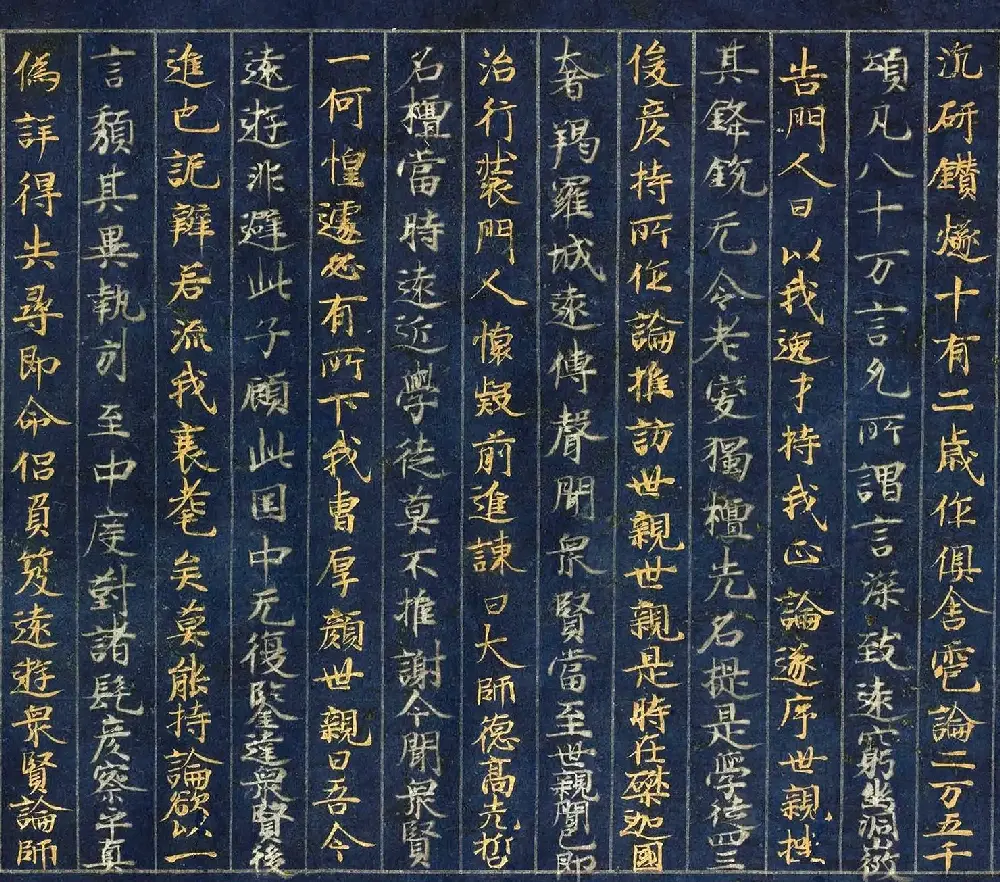 沉研鑽極十有二歳作俱舎雹論二万五千
頌凡八十万言允所謂言深致遠窮幽洞微
告門人曰以我逸才持我正論遂序世親挫
其鋒銳无令老叟獨檀先名於是學徒四三
俊彦持所作論推訪世親世親是時在磔迦國
奢羯羅城遠傳聲聞衆賢當至世親聞已即
治行裝門人懷疑前進諫曰大師德高先哲
名檀當時遠近學徒莫不推謝今聞衆賢
一何惶遽必有所下我曹厚顔世親曰吾今
遠遊非避此子顧此国中无復鑒達衆賢後
進也詭辯若流我衰耄矣莫能持論欲以一
言頽其異執引至中度對諸髦彦察乎真
偽詳得失尋即命侶負笈遠遊衆賢論師